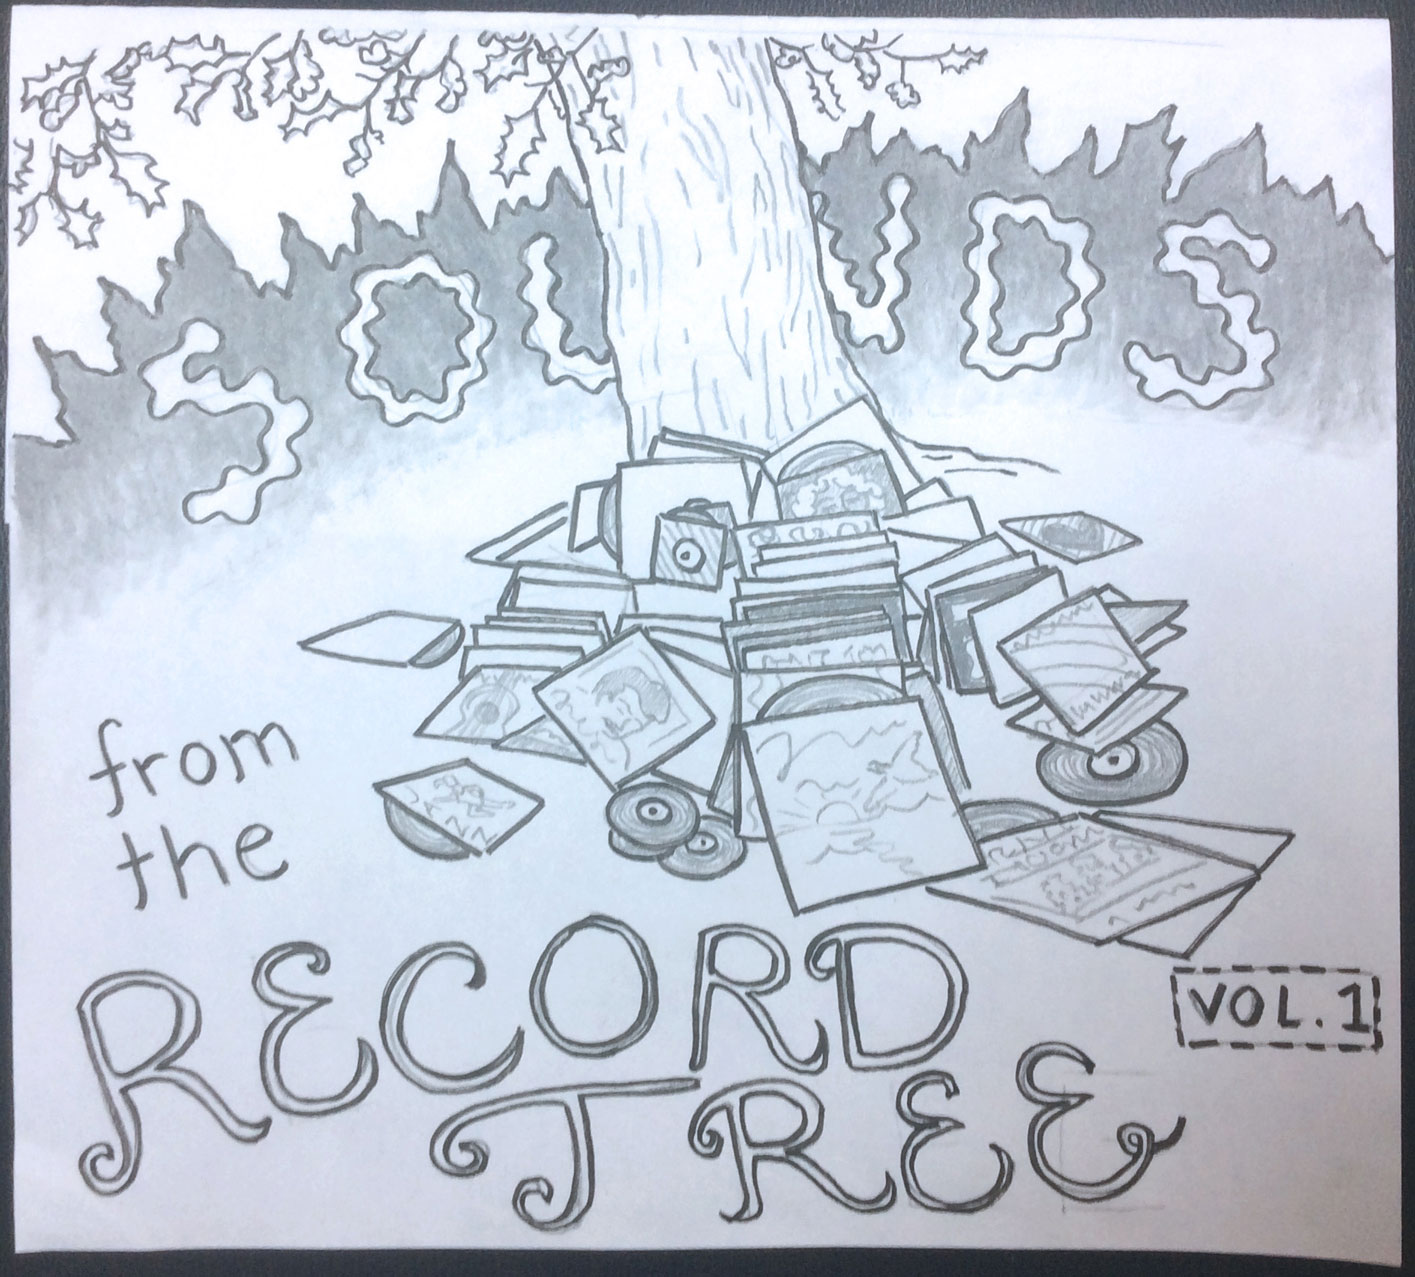 SOUNDS
from
the
RECORD
TREE
VOL. 1